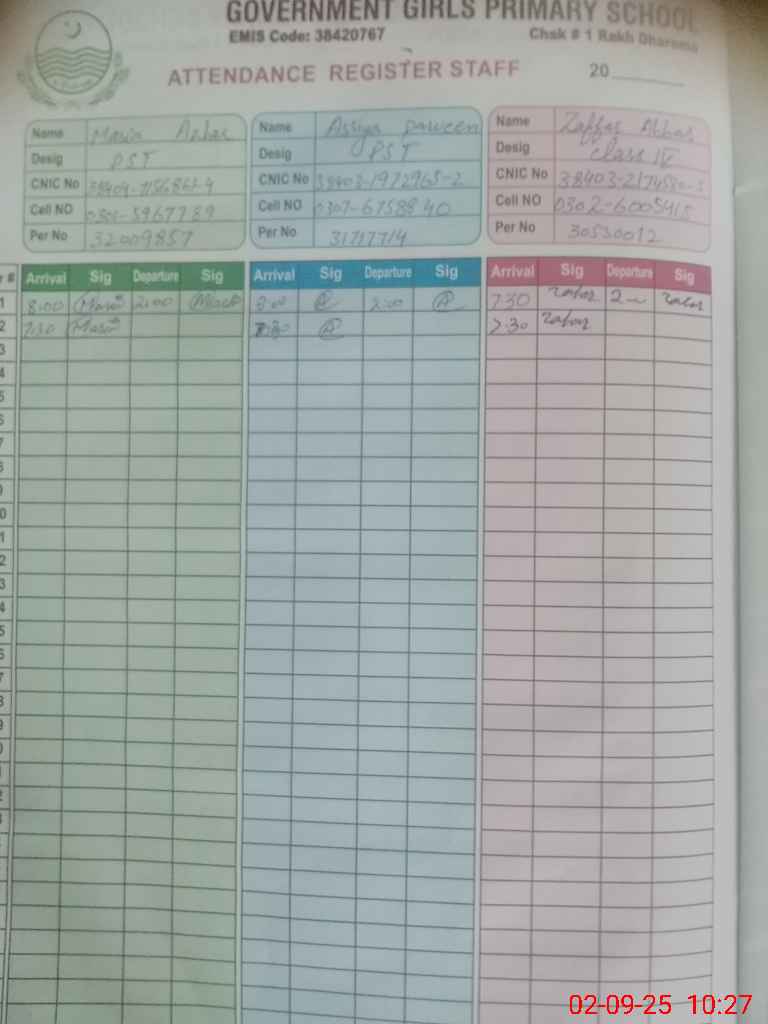 GOVERNMENT GIRLS PRIMARY SCHOOL
EMIS Code: 38420767
Chak # 1 Rakh Dharema
ATTENDANCE REGISTER STAFF
20
Name Name Assiya parveen Name Zaffar Abbas
Desig PST Desig PST Desig Class IV
CNIC No CNIC No 38403-1972965-2 CNIC No
Cell NO Cell NO 0307-6758840 Cell NO 0302-6005415
Per No 32009857 Per No 31717714 Per No 30530012
# Arrival Sig Departure Sig Arrival Sig Departure Sig Arrival Sig Departure Sig
1 8:00 2:00 8:00 2:00 7:30 Zafar 2 Zafar
2 7:30 7:30 7:30 Zafar
3
4
5
6
7
8
9
0
1
2
3
4
5
6
7
8
9
0
1
2
3
02-09-25 10:27